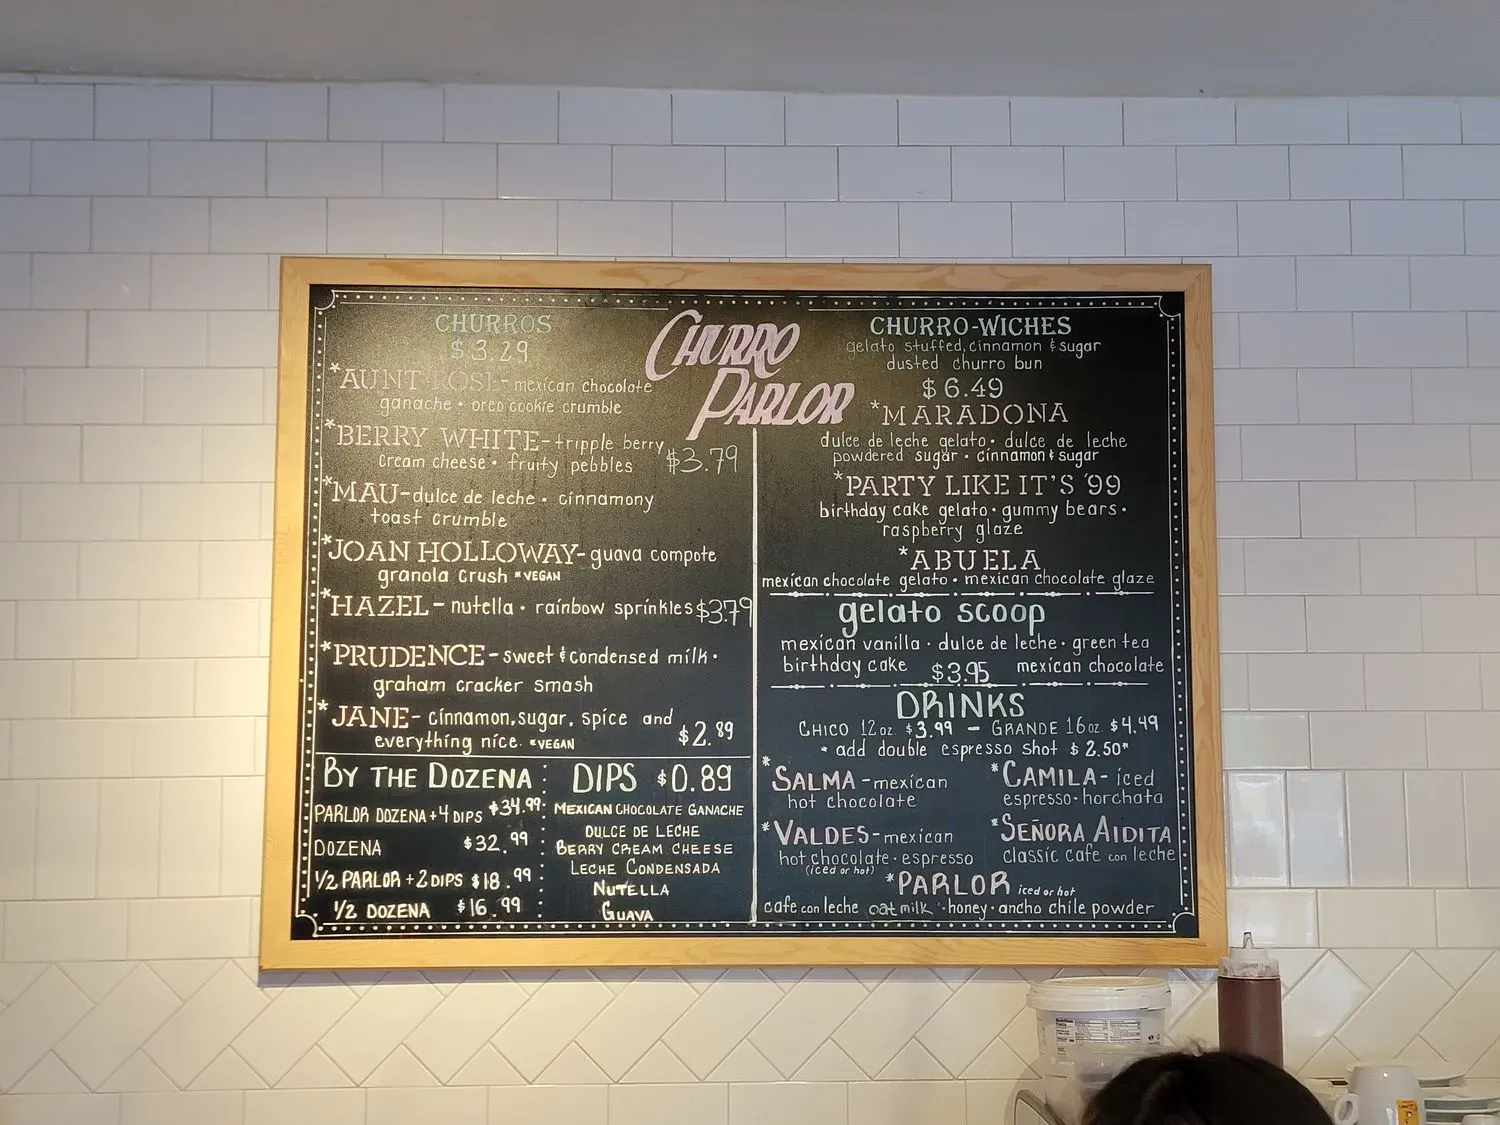 CHURRO
PARLOR
CHURROS
$3.29
*AUNT ROSE-mexican chocolate
ganache • oreo cookie crumble
*BERRY WHITE-tripple berry
cream cheese • fruity pebbles $3.79
*MAU-dulce de leche • cinnamony
toast crumble
*JOAN HOLLOWAY-guava compote
granola crush *VEGAN
*HAZEL-nutella • rainbow sprinkles $3.79
*PRUDENCE-sweet & condensed milk •
graham cracker smash
*JANE-cinnamon, sugar, spice and
everything nice. *VEGAN $2.89
BY THE DOZENA :
PARLOR DOZENA+4 DIPS $34.99
DOZENA $32.99
1/2 PARLOR +2 DIPS $18.99
1/2 DOZENA $16.99
DIPS $0.89
MEXICAN CHOCOLATE GANACHE
DULCE DE LECHE
BERRY CREAM CHEESE
LECHE CONDENSADA
NUTELLA
GUAVA
CHURRO-WICHES
gelato stuffed, cinnamon & sugar
dusted churro bun
$6.49
*MARADONA
dulce de leche gelato • dulce de leche
powdered sugar • cinnamon & sugar
*PARTY LIKE IT'S '99
birthday cake gelato • gummy bears •
raspberry glaze
*ABUELA
mexican chocolate gelato • mexican chocolate glaze
gelato scoop
mexican vanilla • dulce de leche • green tea
birthday cake $3.95 mexican chocolate
DRINKS
CHICO 12oz $3.99 - GRANDE 16oz $4.49
* add double espresso shot $2.50*
*SALMA-mexican
hot chocolate
*CAMILA-iced
espresso • horchata
*VALDES-mexican
hot chocolate • espresso
(iced or hot)
*SEÑORA AIDITA
classic cafe con leche
*PARLOR iced or hot
cafe con leche oat milk • honey • ancho chile powder